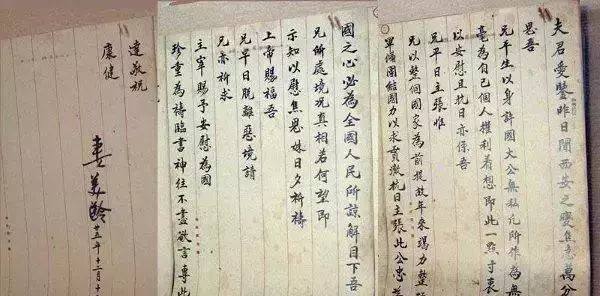 夫君愛鑒昨日聞西安之變焦急萬分
思吾
兄平生以身許國大公無私凡所作為無
毫為自己個人權利着想即此一點寸衷
以安慰且抗日亦係吾
兄平日主張惟
兄以整個國家為前提故年來竭力整
軍備團結國力以求貫澈抗日主張此公忠
國之心必為全國人民所諒解目下吾
兄所處境況真相若何望即
示知以慰焦思妹日夕祈禱
上帝賜福吾
兄早日脫離惡境請
兄亦祈求
主宰賜予安慰為國
珍重為禱臨書神往不盡欲言專此
達敬祝
康健
美齡
廿五年十二月十